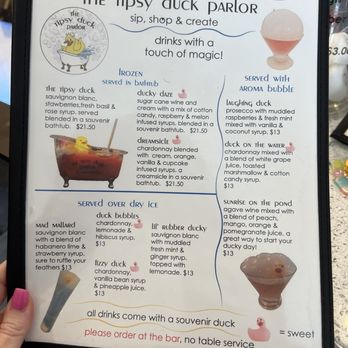 the tipsy duck parlor
the
tipsy duck
parlor
sip, shop & create
drinks with a
touch of magic!
frozen
served in bathtub
the tipsy duck
sauvignon blanc,
stawberries,fresh basil &
rose syrup, served
blended in a souvenir
bathtub. $21.50
ducky daze
sugar cane wine and
cream with a mix of cotton
candy, raspberry & melon
infused syrups, blended in a
souvenir bathtub. $21.50
dreamsicle
chardonnay blended
with cream, orange,
vanilla & cupcake
infused syrups, a
creamsicle in a souvenir
bathtub. $21.50
served with
aroma bubble
laughing duck
prosecco with muddled
raspberries & fresh mint
mixed with vanilla &
coconut syrup. $13
duck on the water
chardonnay mixed with
a blend of white grape
juice, toasted
marshmallow & cotton
candy syrup.
$13
sunrise on the pond
agave wine mixed with
a blend of peach,
mango, orange &
pomegranate juice, a
great way to start your
ducky day!
$13
served over dry ice
mad mallard
sauvignon blanc
with a blend of
habanero lime &
strawberry syrup.
sure to ruffle your
feathers $13
duck bubbles
chardonnay,
lemonade &
hibiscus syrup.
$13
fizzy duck
chardonnay,
vanilla bean syrup
& pineapple juice.
$13
lil' rubber ducky
sauvignon blanc
with muddled
fresh mint &
ginger syrup.
topped with
lemonade. $13
all drinks come with a souvenir duck
please order at the bar, no table service
= sweet